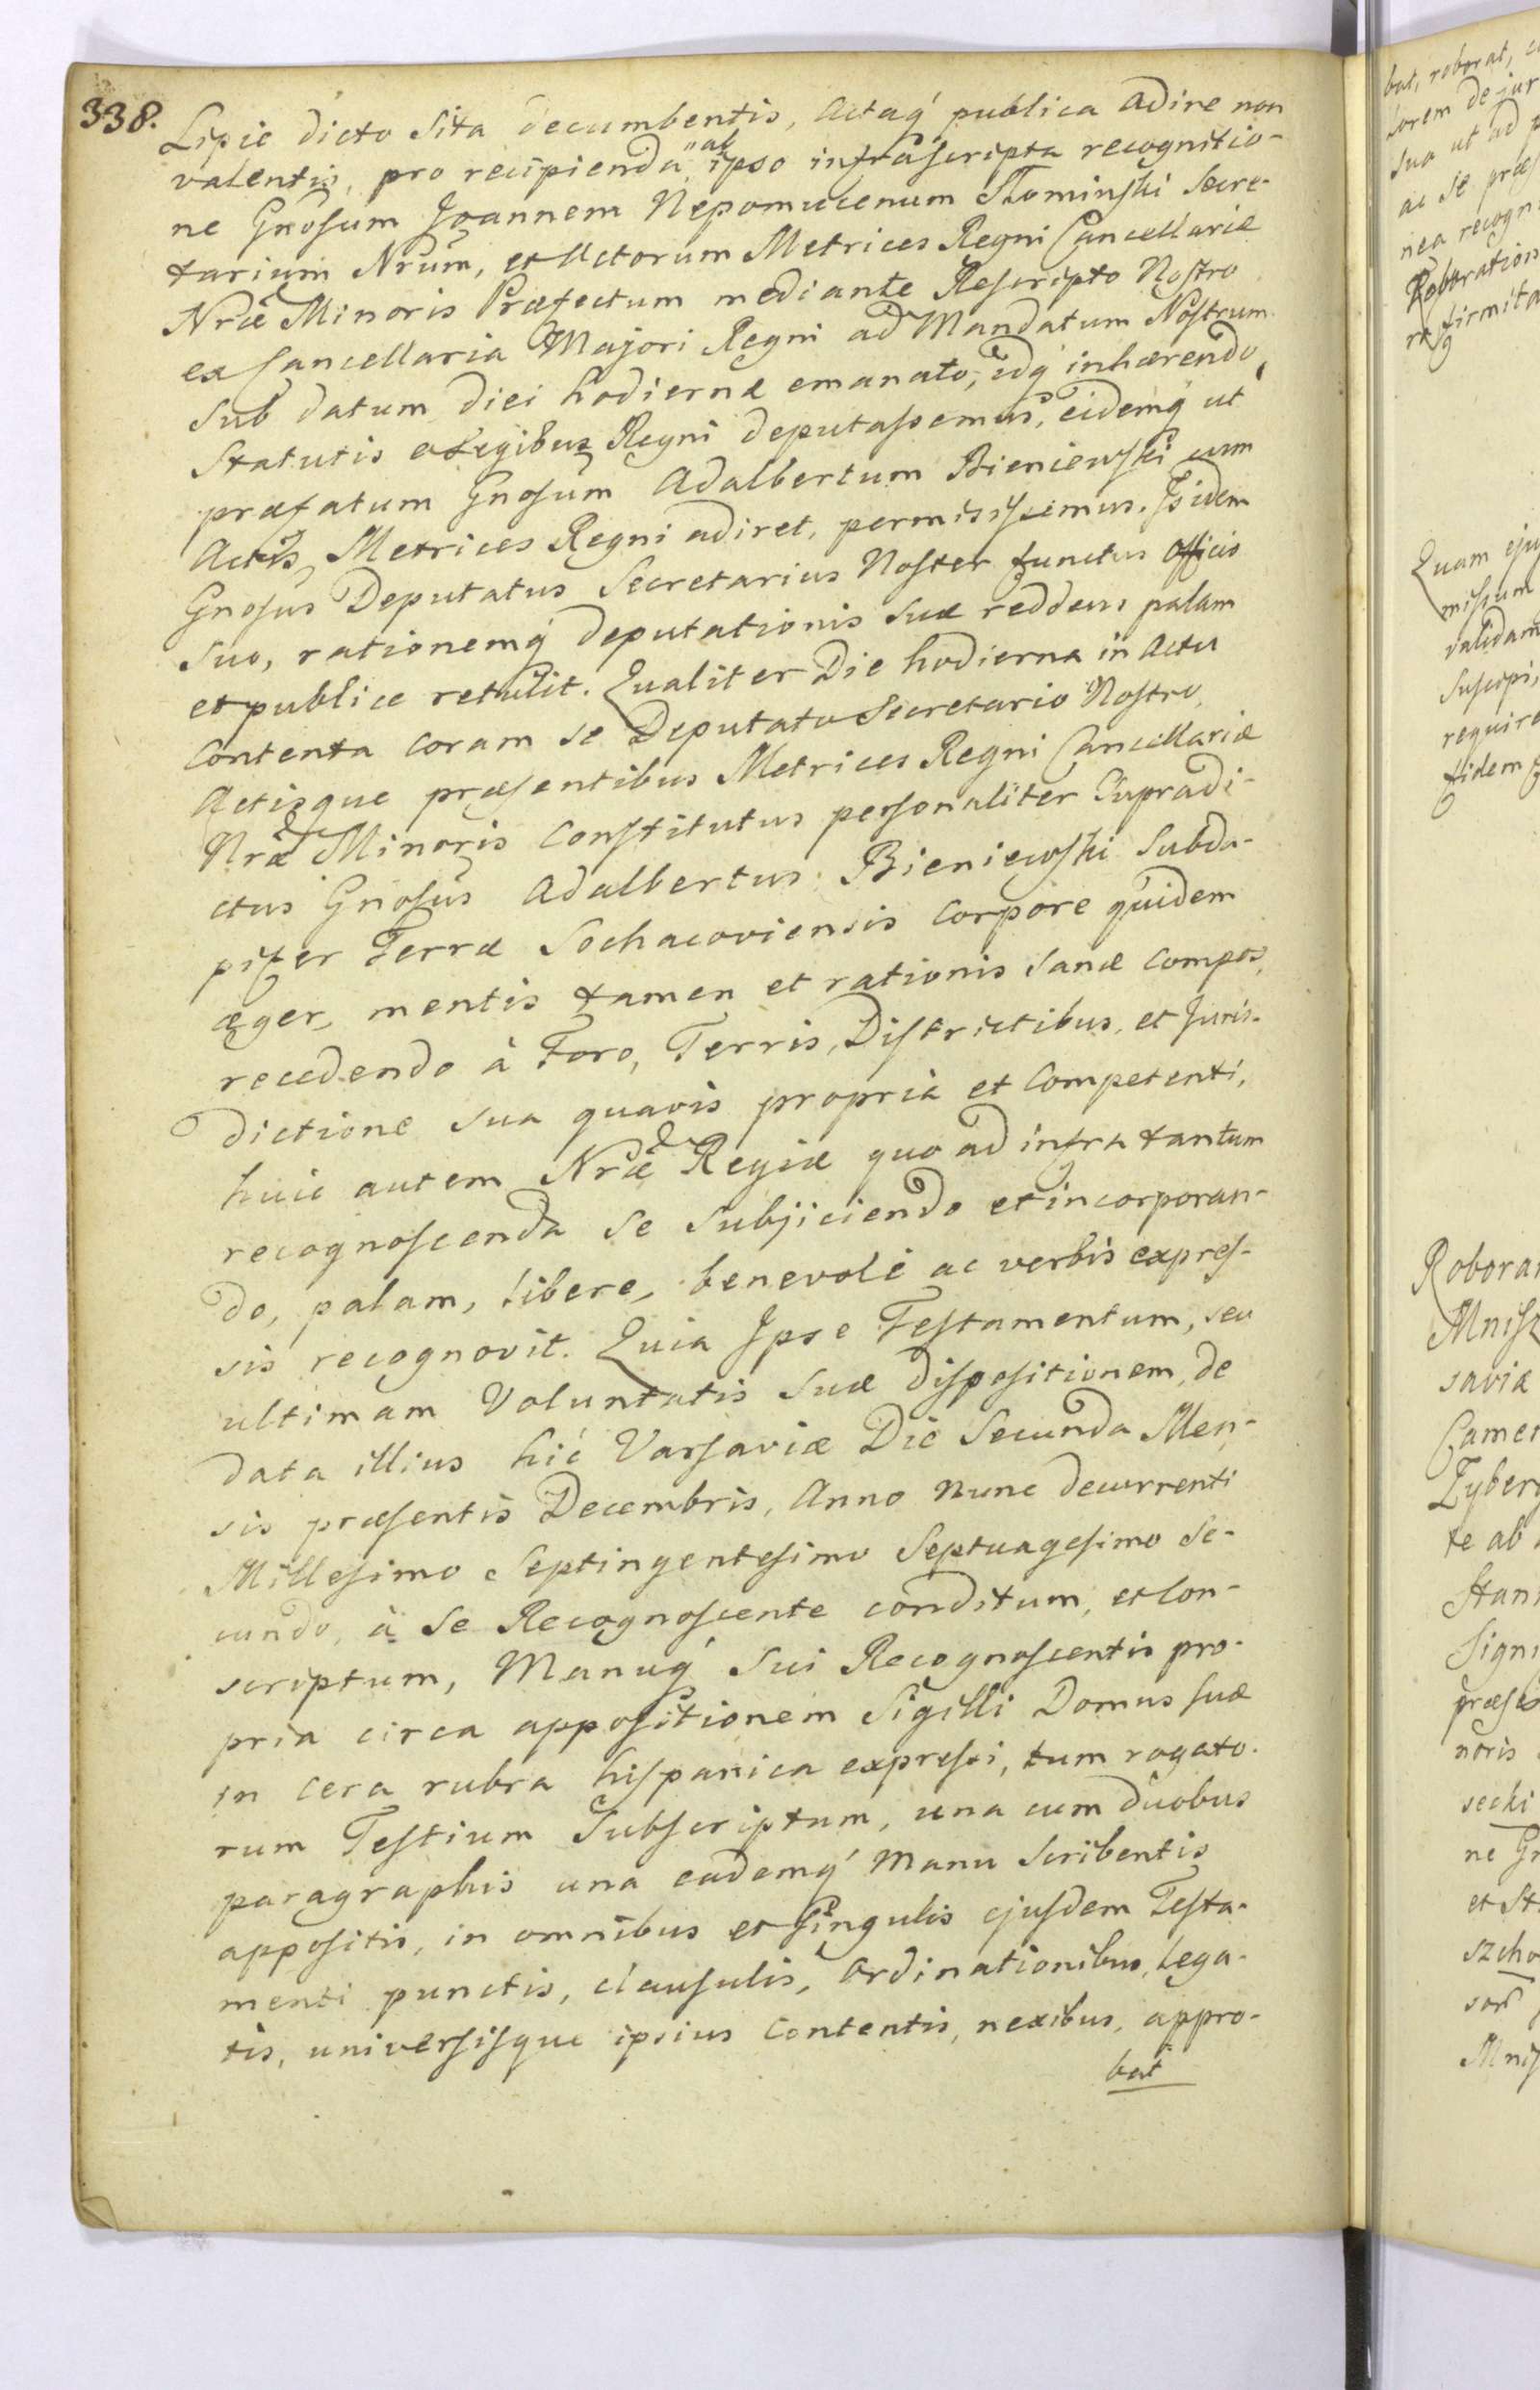 338.
Lipie dicto Sita decumbentis, Actaq́ publica adire non
valentis, pro recipienda "ab ipso infrascripta recognitio-
ne Gnosum Joannem Nepomucenum Słominski Secre-
tarium Nrum, et Actorum Metrices Regni Cancellariæ
Nræ Minoris Præfectum mediante Rescripto Nostro
ex Cancellaria Majori Regni ad Mandatum Nostrum
sub datum diei hodiernæ emanato, idq́ inhærendo
Statutis et Legibus Regni deputassemus, eidemq́ ut
præfatum Gnosum Adalbertum Bieniewski cum
Actis Metrices Regni adiret, permisissemus. Is idem
Gnosus Deputatus Secretarius Noster functus Officio
suo, rationemq́ deputationis suæ reddens palam
et publice retulit. Qualiter Die hodierna in Actu
contenta coram se Deputato Secretario Nostro,
Actisque præsentibus Metrices Regni Cancellariæ
Nræ Minoris Constitutus personaliter Supradi-
ctus Gnosus Adalbertus Bieniewski Subda-
pifer Terræ Sochacoviensis Corpore quidem
æger, mentis tamen et rationis sanæ compos,
recedendo à Foro, Terris, Districtibus, et Juris-
dictione sua quavis propria et Competenti,
huic autem Nræ Regiæ quo ad infra tantum
recognoscenda se subjiciendo et incorporan-
do, palam, libere, benevolè ac verbis expres-
sis recognovit. Quia Ipse Testamentum, seu
ultimam Voluntatis suæ dispositionem, de
data illius hic Varsaviæ Die Secunda Men-
sis præsentis Decembris, Anno nunc decurrenti
Millesimo Septingentesimo Septuagesimo Se-
cundo, à se Recognoscente conditum, et con-
scriptum, Manuq́ sui Recognoscentis pro-
pria circa appositionem Sigilli Domus suæ
in cera rubra hispanica expressi, tum rogato-
rum Testium Subscriptum, una cum duobus
paragraphis una eademq́ Manu Scribentis
appositis, in omnibus et singulis ejusdem Testa-
menti punctis, clausulis, Ordinationibus, Lega-
tis, universisque ipsius Contentis, nexibus, appro-
bat
bat, roborat,
lorem de jur
suo ut ad
ac se præs
nea recogn
Roboration
firmita
Quam eju
missum
validam
suscepi,
require
fidem
Robora
Mnisz
saviæ
Camer
Zyber
te ab
Stan
Signi
noris
secki
ne G
et St
szcho
Mnis